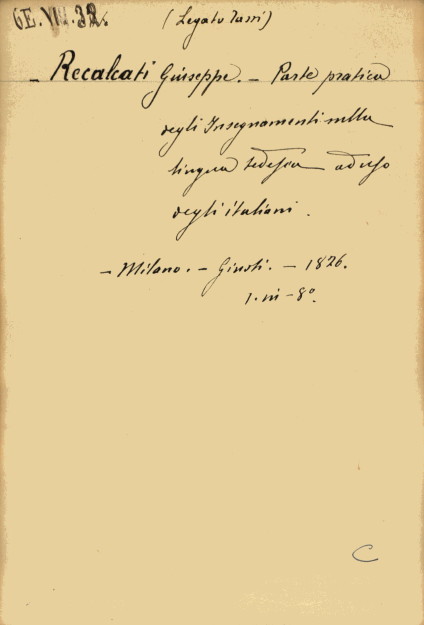 6E.VIII.32. (Legato Tarri)
– Recalcati Giuseppe. – Parte pratica
degli Insegnamenti sulla
lingua tedesca ad uso
degli italiani.
– Milano. – Giusti. – 1826.
1. in – 8º.
C